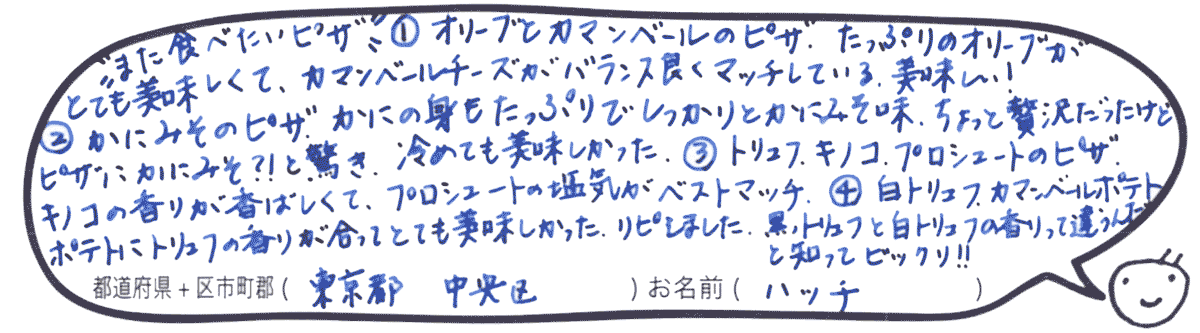 "また食べたいピザ" ① オリーブとカマンベールのピザ. たっぷりのオリーブが
とても美味しくて、カマンベールチーズがバランス良くマッチしている、美味しい!
② かにみそのピザ. かにの身もたっぷりでしっかりとかにみそ味. ちょっと贅沢だったけど
ピザにかにみそ?!と驚き. 冷めても美味しかった. ③ トリュフ. キノコ. プロシュートのピザ.
キノコの香りが香ばしくて、プロシュートの塩気がベストマッチ. ④ 白トリュフカマンベールポテト
ポテトにトリュフの香りが合ってとても美味しかった. リピしました. 黒トリュフと白トリュフの香りって違うんだ
と知ってビックリ!!
都道府県+区市町郡( 東京都 中央区 )お名前( ハッチ )